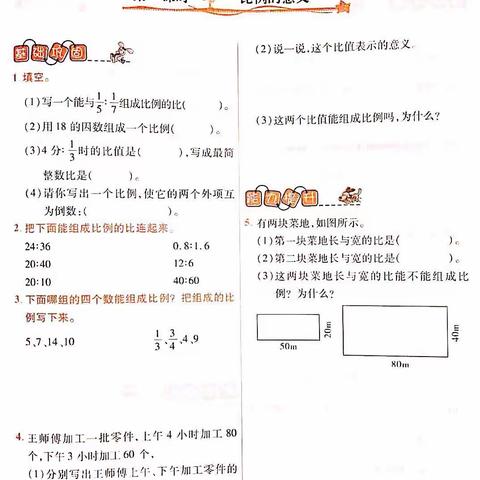 比例的意义
基础巩固
1 填空。
(1)写一个能与1/5:1/7组成比例的比(　　)。
(2)用18的因数组成一个比例(　　)。
(3)4分:1/3时的比值是(　　),写成最简
整数比是(　　)。
(4)请你写出一个比例,使它的两个外项互
为倒数:(　　)。
2. 把下面能组成比例的比连起来。
24:36　0.8:1.6
20:40　12:6
20:10　40:60
3. 下面哪组的四个数能组成比例? 把组成的比
例写下来。
5、7、14、10　1/3、3/4、4、9
4. 王师傅加工一批零件、上午4小时加工80
个,下午3小时加工60个,
(1)分别写出王师傅上午、下午加工零件的
(2)说一说,这个比值表示的意义。
(3)这两个比值能组成比例吗,为什么?
5. 有两块菜地,如图所示。
(1)第一块菜地长与宽的比是(　　)。
(2)第二块菜地长与宽的比是(　　)。
(3)这两块菜地长与宽的比能不能组成比
例? 为什么?
50m
20m
80m
40m